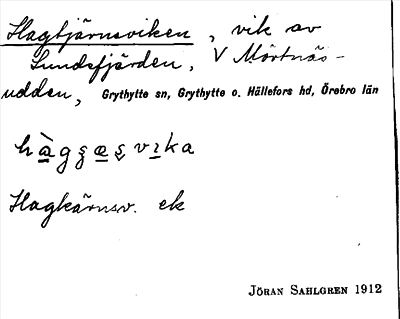 Hagtjärnsviken, vik av
Sundsfjärden, V Mörtnäs-
udden, Grythytte sn, Grythytte o. Hällefors hd, Örebro län
Hagkärnsv. ek
JÖRAN SAHLGREN 1912